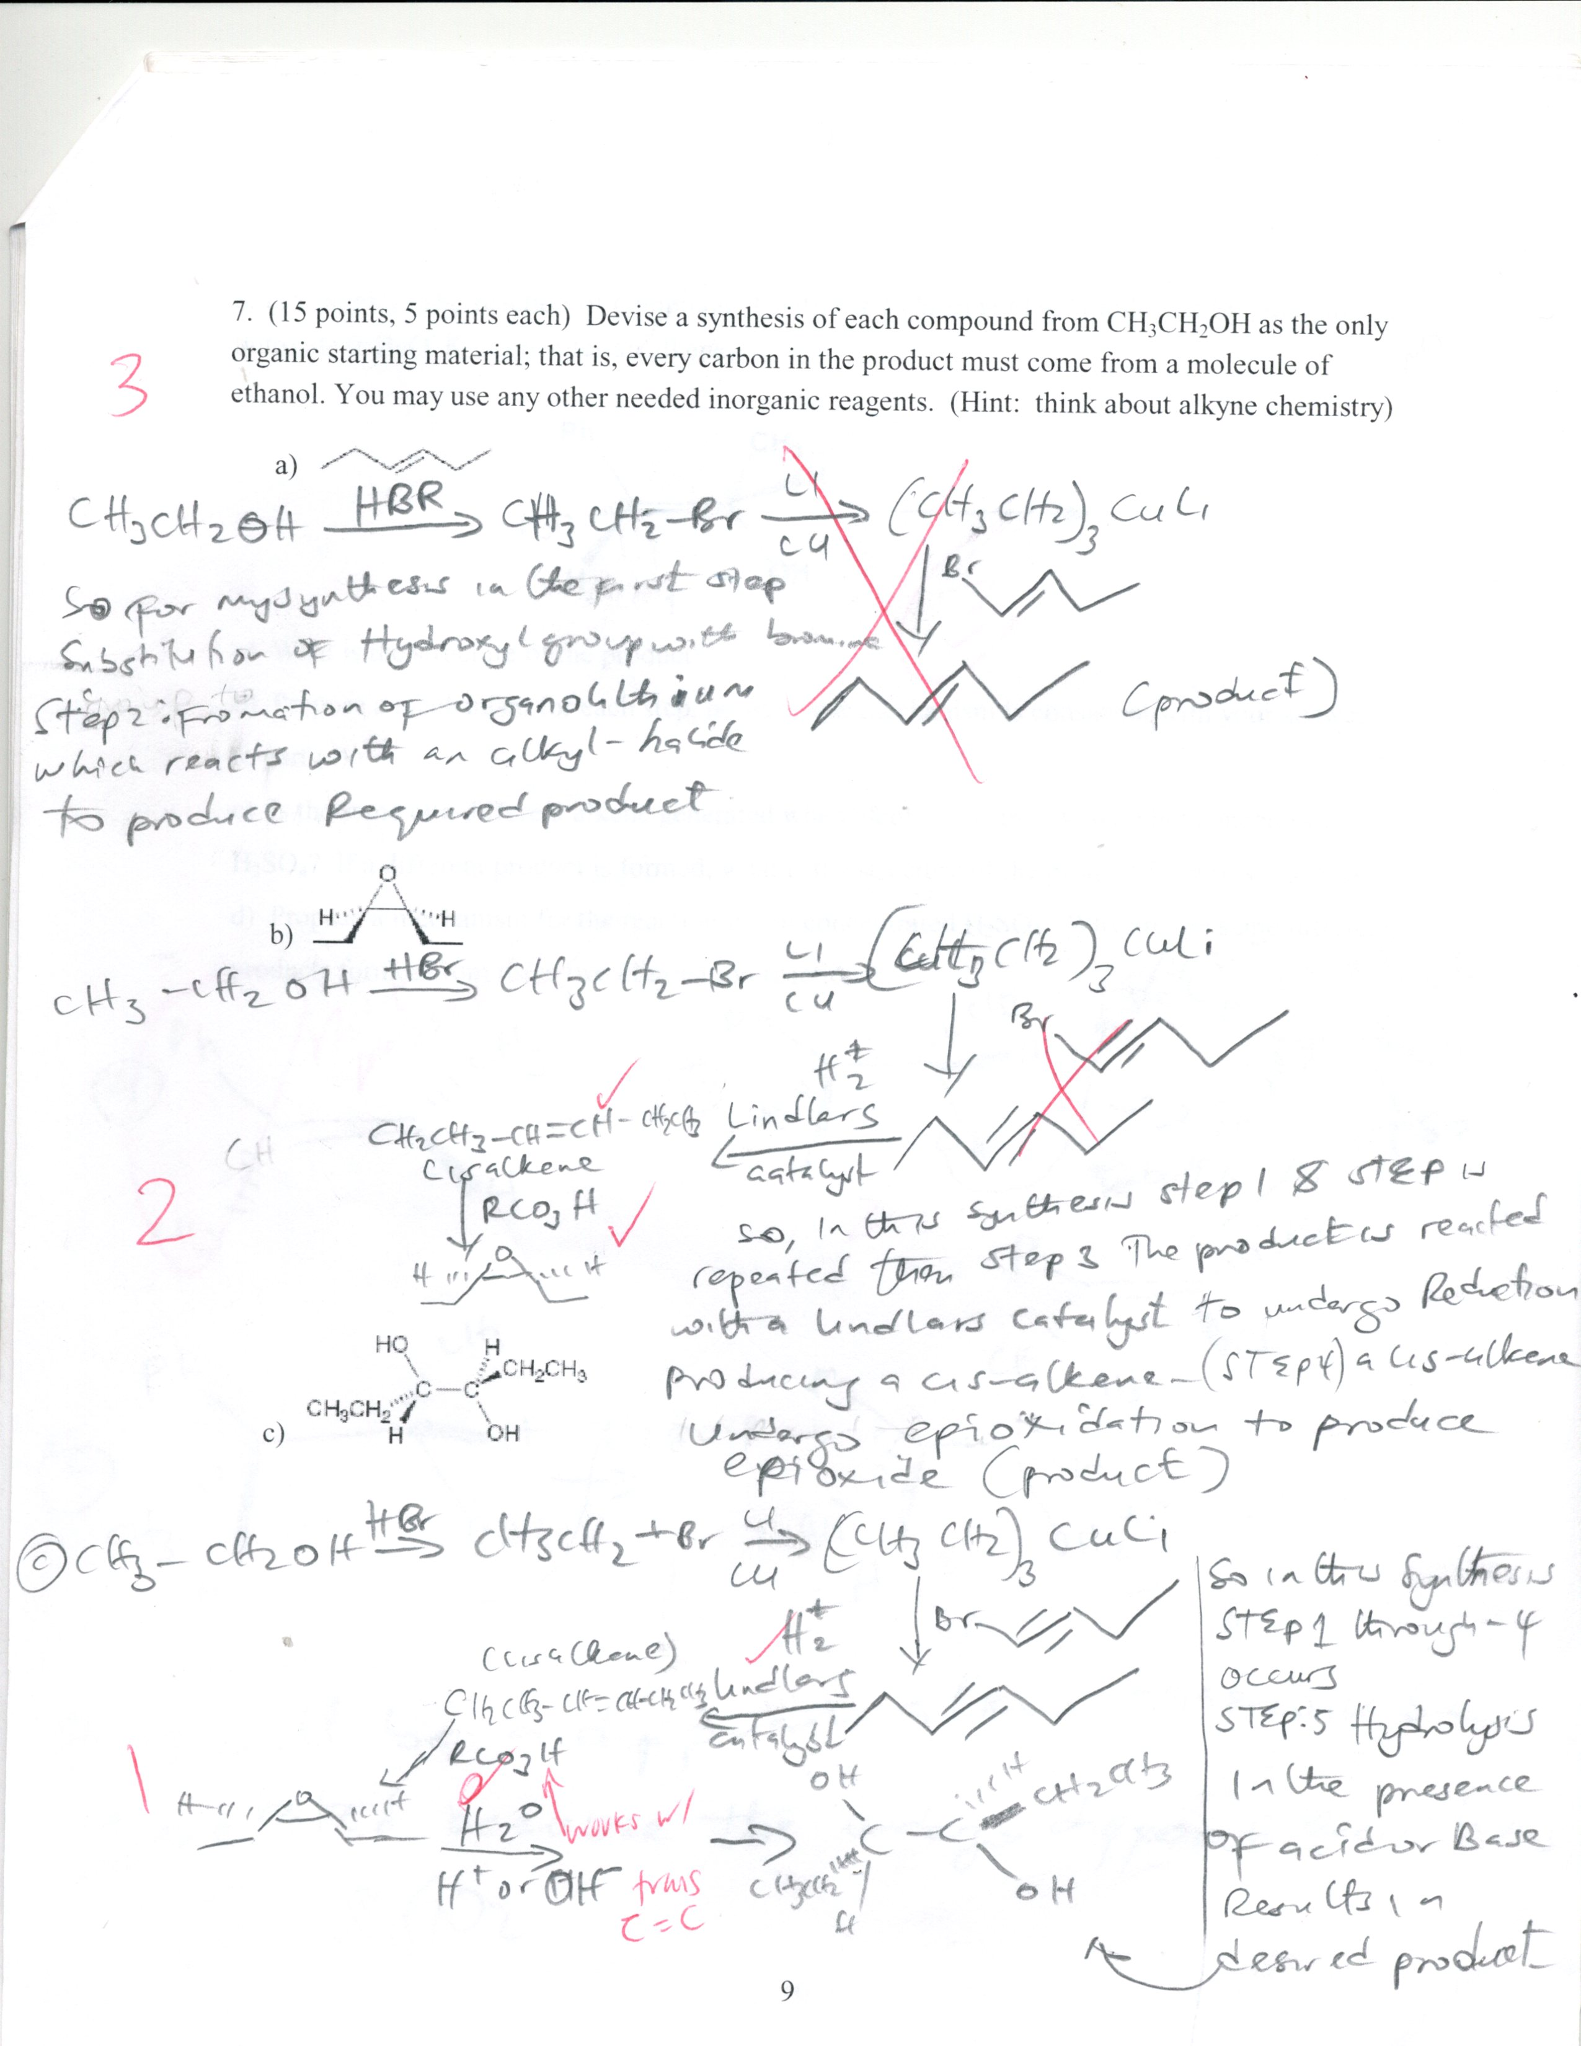 7. (15 points, 5 points each) Devise a synthesis of each compound from CH₃CH₂OH as the only
organic starting material; that is, every carbon in the product must come from a molecule of
ethanol. You may use any other needed inorganic reagents. (Hint: think about alkyne chemistry)
3
a)
CH₃CH₂OH HBR CH₃CH₂-Br Li Cu (CH₃CH₂)₃CuLi
Br
So for my synthesis in the first step
Substitution of Hydroxyl group with bromine
Step 2: Fromation of organolithium
which reacts with an alkyl-halide
to produce Required product
(product)
b)
O
H H
CH₃-CH₂OH HBr CH₃CH₂-Br Li Cu (CH₃CH₂)₃CuLi
Br
H₂ Lindlars catalyst
CH₂CH₃-CH=CH-CH₂CH₃
Cis alkene
RCO₃H
H O H
2
so, In this synthesis step 1 & STEP is
repeated then step 3 The product is reacted
with a Lindlars Catalyst to undergo Reduction
producing a cis-alkene-(STEP4) a cis-alkene
Undergo epioxidation to produce
epioxide (product)
c)
HO H
CH₂CH₃
C-C
CH₃CH₂
H OH
(c) CH₃-CH₂OH HBr CH₃CH₂+Br Li Cu (CH₃CH₂)₃CuLi
Br
H₂ Lindlars Catalyst
(cis alkene)
CH₂CH₃-CH=CH-CH₂CH₃
RCO₃H
1
H O H
H₂O
H⁺ or OH⁻
works w/
trans
C=C
OH H
CH₂CH₃
C-C
CH₃CH₂
H OH
So in this Synthesis
STEP 1 through-4
occurs
STEP:5 Hydrolysis
In the presence
of acid or Base
Results in
desired product
9